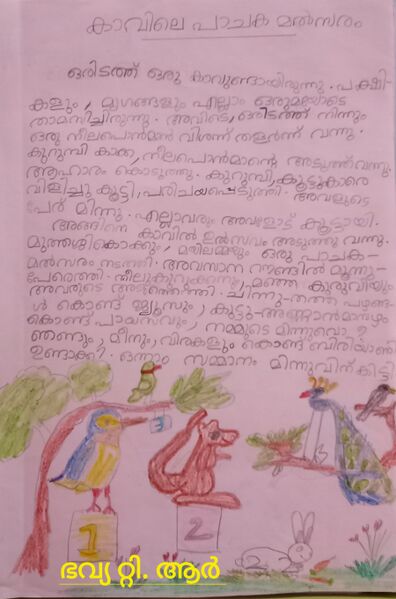 കാവിലെ പാചക മൽസരം
ഒരിടത്ത് ഒരു കാവുണ്ടായിരുന്നു. പക്ഷി-
കളും, മൃഗങ്ങളും എല്ലാം ഒരുമയോടെ
താമസിച്ചിരുന്നു. അവിടെ, ഒരിടത്ത് നിന്നും
ഒരു നീലപൊൻമാൻ വിശന്ന് തളർന്ന് വന്നു.
കുറുമ്പി കാക്ക, നീലപൊൻമാന്റെ അടുത്ത് വന്നു.
ആഹാരം കൊടുത്തു. കുറുമ്പി, കൂട്ടുകാരെ
വിളിച്ചു കൂട്ടി, പരിചയപ്പെടുത്തി. അവളുടെ
പേര് മിന്നു. എല്ലാവരും അവളോട് കൂട്ടായി.
അങ്ങിനെ കാവിൽ ഉൽസവം അടുത്തു വന്നു.
മുത്തശ്ശികൊക്കും, മയിലമ്മയും ഒരു പാചക-
മൽസരം നടത്തി. അവസാന റൗണ്ടിൽ മൂന്നു-
പേരെത്തി. മഞ്ഞ കുരുവിയും
അവരുടെ ചിന്നു-തത്ത പഴങ്ങ-
ൾ കൊണ്ട് ജ്യൂസും, കുട്ടു-അണ്ണാൻമാമ്പഴം
കൊണ്ട് പായസവും, നമ്മുടെ മിന്നുവൊ ?
ഞണ്ടും, മീനും, വിരകളും കൊണ്ട് ബിരിയാണി
ഉണ്ടാക്കി. ഒന്നാം സമ്മാനം മിന്നുവിന് കിട്ടി
3
1
2
3
ഭവ്യ റ്റി. ആർ